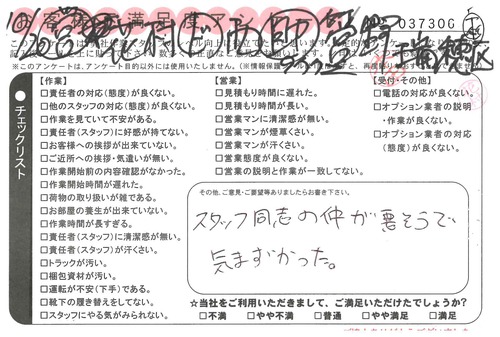 037306
チェックリスト
【作業】
□責任者の対応(態度)が良くない。
□他のスタッフの対応(態度)が良くない。
□作業を見ていて不安がある。
□責任者(スタッフ)に好感が持てない。
□お客様への挨拶が出来ていない。
□ご近所への挨拶・気遣いが無い。
□作業開始前の内容確認がなかった。
□作業開始時間が遅れた。
□荷物の取り扱いが雑である。
□お部屋の養生が出来ていない。
□作業時間が長すぎる。
□責任者(スタッフ)に清潔感が無い。
□責任者(スタッフ)が汗くさい。
□トラックが汚い。
□梱包資材が汚い。
□運転が不安(下手)である。
□靴下の履き替えをしてない。
□スタッフにやる気がみられない。
【営業】
□見積もり時間に遅れた。
□見積もり時間が長い。
□営業マンに清潔感が無い。
□営業マンが煙草くさい。
□営業マンが汗くさい。
□営業態度が良くない。
□営業の説明と作業が一致してない。
【受付・その他】
□電話の対応が良くない。
□オプション業者の説明
・作業が良くない。
□オプション業者の対応
(態度)が良くない。
その他、ご意見・ご要望等ありましたらお書き下さい。
スタッフ同志の仲が悪そうで
気まずかった。
☆当社をご利用いただきまして、ご満足いただけたでしょうか?
□不満 □やや不満 □普通 □やや満足 □満足